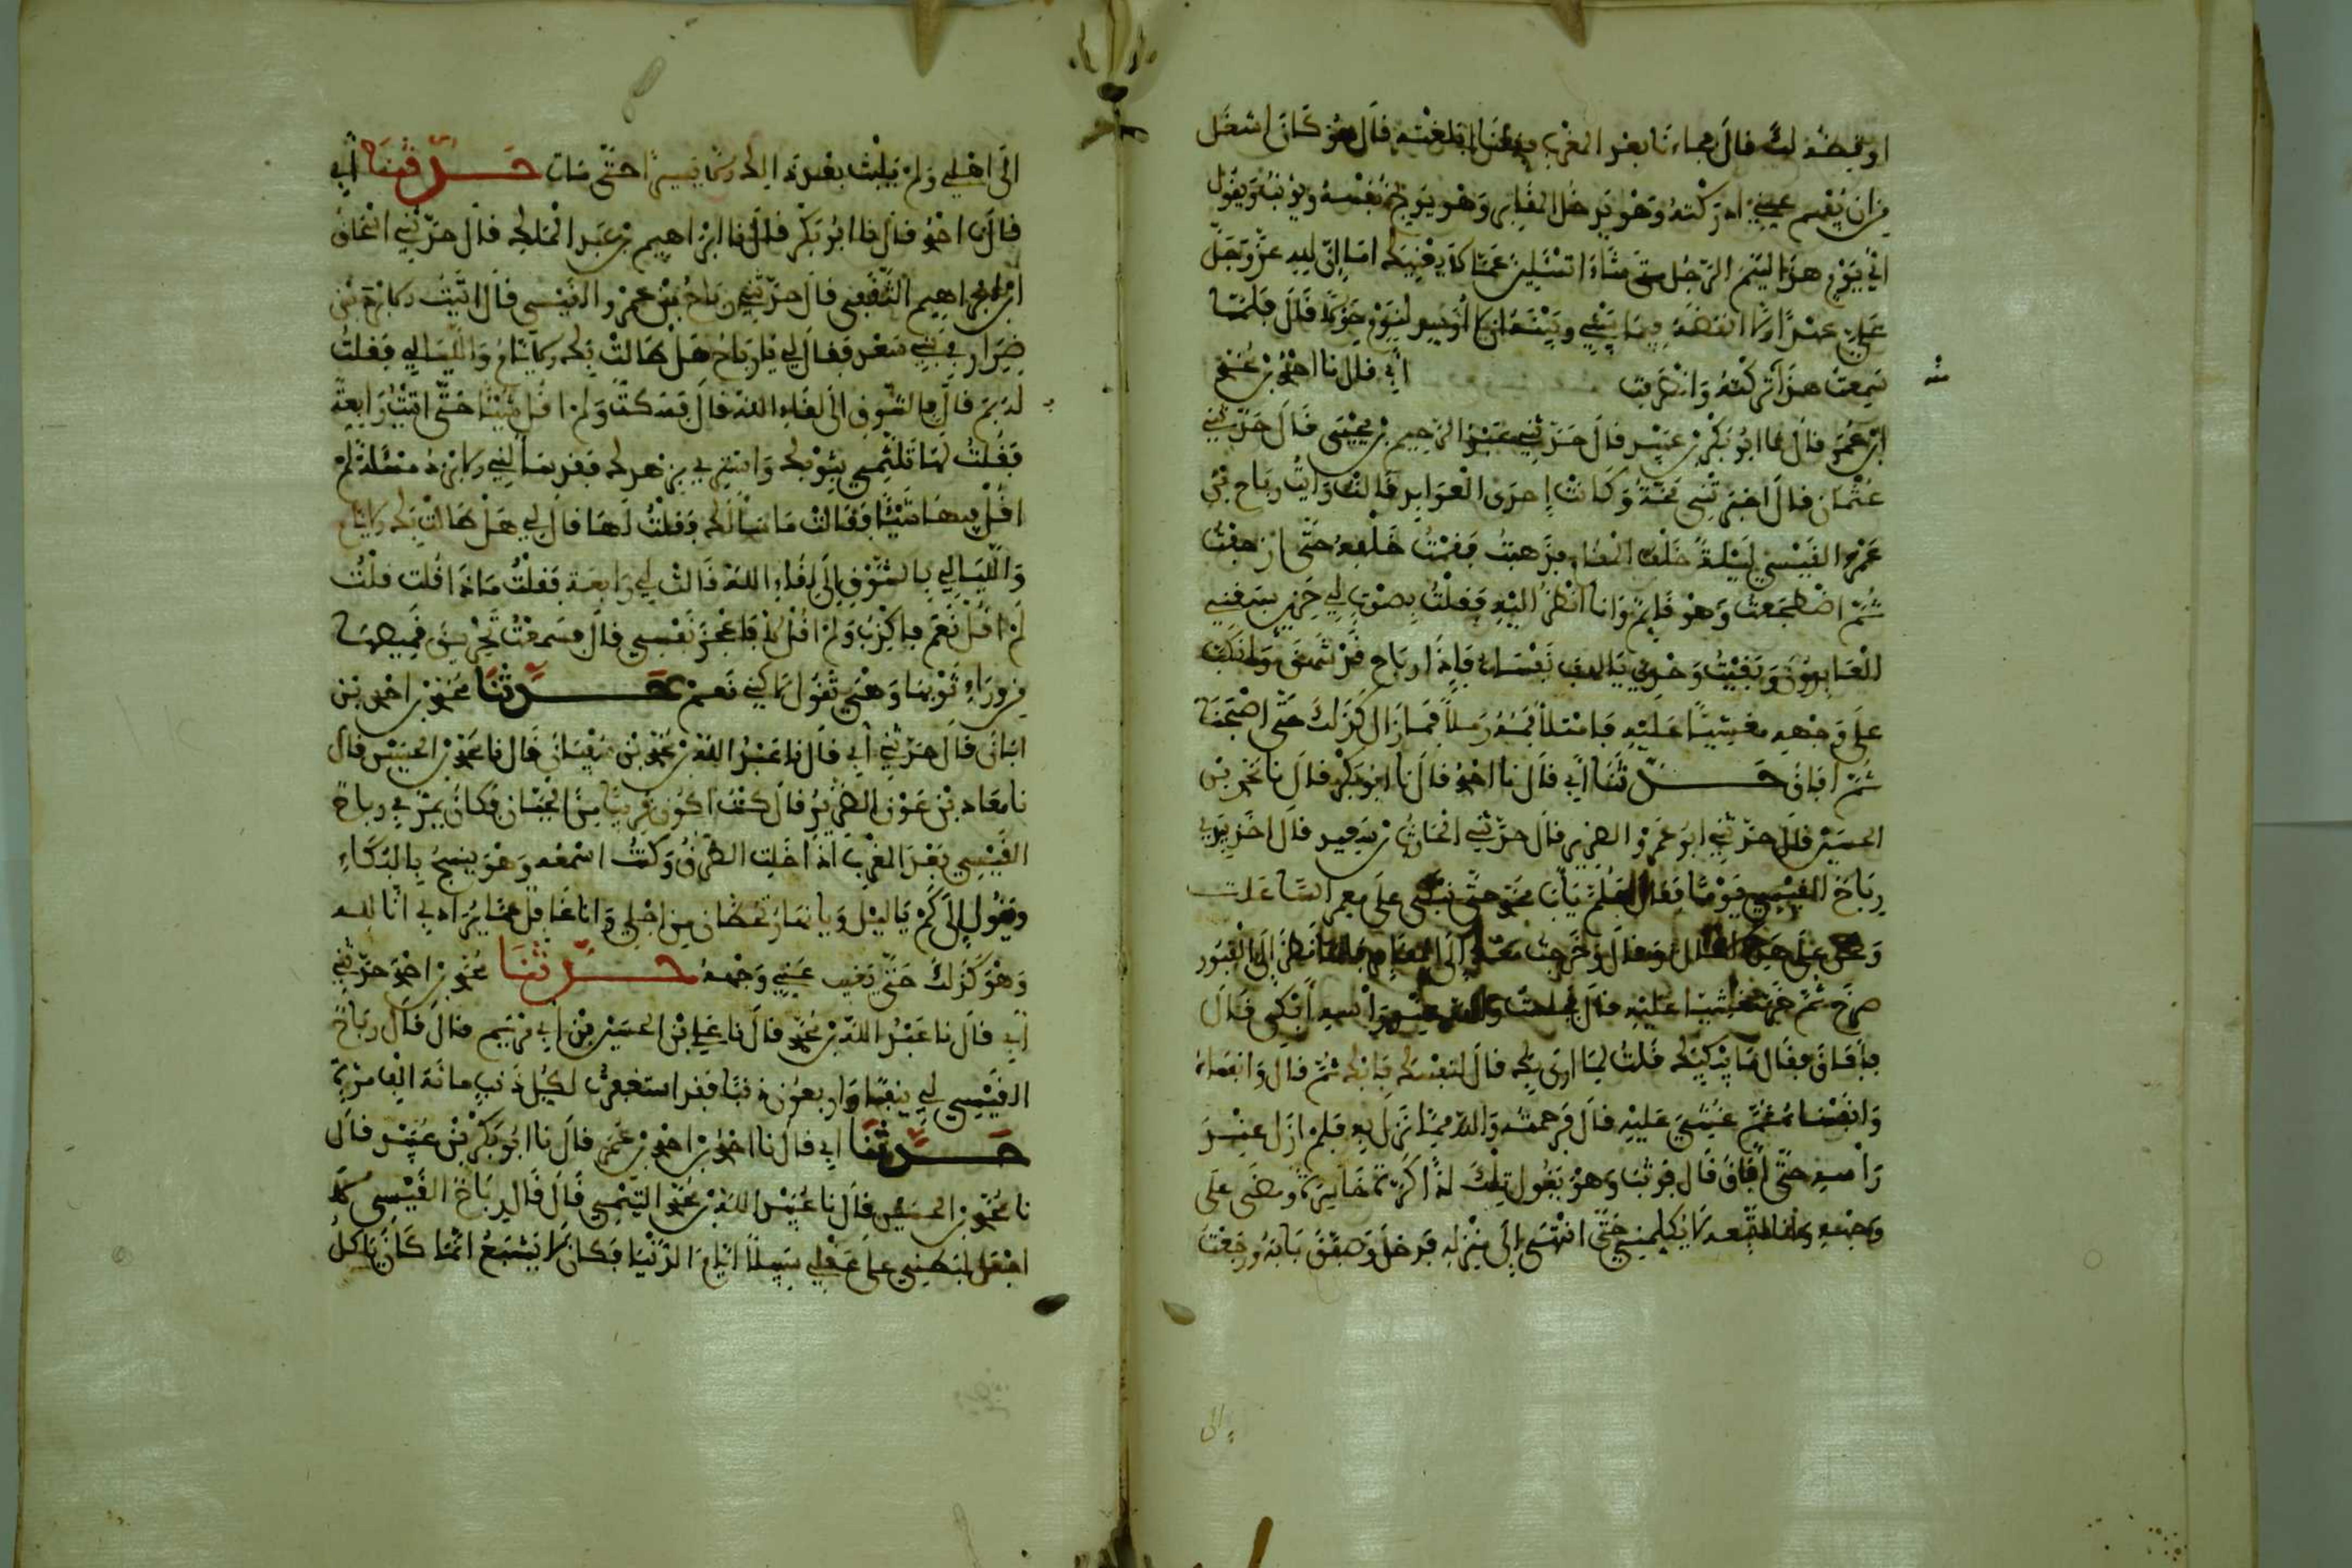 او نوقظه لك قال فجاءنا بعد المغرب فقلنا ابلغته قال هو كان اشغل
من ان يفهم عني ادركته وهو يدخل المقابر وهو يوبخ نفسه ويؤنبه ويقول
اني نوم هذا لينم الرجل متى شاء اتسئلين عما لا يعنيك اما ان لله عز وجل
علي عهدا ان لا انقضه فيما بيني وبينه ان لا اوسد لنوم حولا قال فلما
سمعت هذا تركته وانصرفت ابي قال نا احمد بن محمد
ابن عمر قال نا ابو بكر بن عبيد قال حدثني عبد الرحيم بن يحيى قال حدثني
عثمان قال اخبرتني مخة وكانت احدى العوابد قالت رايت رباح بن
عمرو القيسي ليلة خلف المقام فذهبت فقمت خلفه حتى ازحفت
ثم اضطجعت وهو قايم وانا انظر اليه فقلت بصوت لي حزين سبقني
العابدون وبقيت وحدي يا لهف نفساه فاذا رباح قد شهق وانكب
على وجهه مغشيا عليه فامتلا فمه رملا فما زال كذلك حتى اصبحنا
ثم افاق حدثنا ابي قال نا احمد قال نا ابو بكر قال نا محمد بن
الحسين قال حدثني ابو عمرو الضرير قال حدثني الحارث بن سعيد قال اخذ بيدي
رباح القيسي يوما فقال هلم يا ابا محمد حتى نبكي على ممر الساعات
ونحن على هذه الحال قال وخرجت معه الى المقابر فلما نظر الى القبور
صرخ ثم خر مغشيا عليه قال فجلست والله عند راسه ابكي قال
فافاق فقال ما يبكيك قلت لما ارى بك قال لنفسك فابك ثم قال وانفساه
وانفساه ثم غشي عليه قال فرحمته والله مما نزل به فلم ازل عند
راسه حتى افاق قال فوثب وهو يقول تلك اذا كرة خاسرة ومضى على
وجهه وانا اتبعه لا يكلمني حتى انتهى الى منزله فدخل وصفق بابه ورجعت
الى اهلي ولم يلبث بعد ذلك الا يسيرا حتى مات حدثنا ابي
قال نا احمد قال نا ابو بكر قال نا ابراهيم بن عبد الملك قال حدثني اسحاق
ابن ابراهيم الثقفي قال حدثني رباح بن عمرو القيسي قال اتيت الابرد بن
ضرار في بني سعد فقال لي يا رباح هل طالت بك الايام والليالي فقلت
له بم قال بالشوق الى لقاء الله قال فسكت ولم اقل شيئا حتى اتيت رابعة
فقلت لها تلثمي بثوبك وانتبزي بزهدك فقد سالني الابرد مسئلة لم
اقل فيها شيئا فقالت ما سالك فقلت لها قال لي هل طالت بك الايام
والليالي بالشوق الى لقاء الله قالت لي رابعة فقلت ماذا قلت قلت
لم اقل نعم فاكذب ولم اقل لا فاعجز نفسي قال فسمعت تحريق قميصها
من وراء ثوبها وهي تقول لكني نعم حدثنا محمد بن احمد بن
ابان قال حدثني ابي قال نا عبد الله بن محمد بن سفيان قال نا محمد بن الحسين قال
نا معاذ بن عون الضرير قال كنت اكون قريبا من الجبان فكان يمر بي رباح
القيسي بعد المغرب اذا خلت الطرق وكنت اسمعه وهو ينشج بالبكاء
ويقول الى كم يا ليل ويا نهار تحطان من اجلي وانا غافل عما يراد بي انا لله
وهو كذلك حتى يغيب عني وجهه حدثنا محمد بن احمد حدثني
ابي قال نا عبد الله بن محمد قال نا علي بن الحسين بن ابي مريم قال قال رباح
القيسي لي نيفا واربعون ذنبا فقد استغفرت لكل ذنب مائة الف مرة
حدثنا ابي قال نا احمد بن احمد بن عمر قال نا ابو بكر بن عبيد قال
نا محمد بن الحسين قال نا عبيد الله بن محمد التيمي قال قال رباح القيسي لا
اجعل لبطني على عقلي سبيلا ايام الدنيا فكان لا يشبع انما كان ياكل